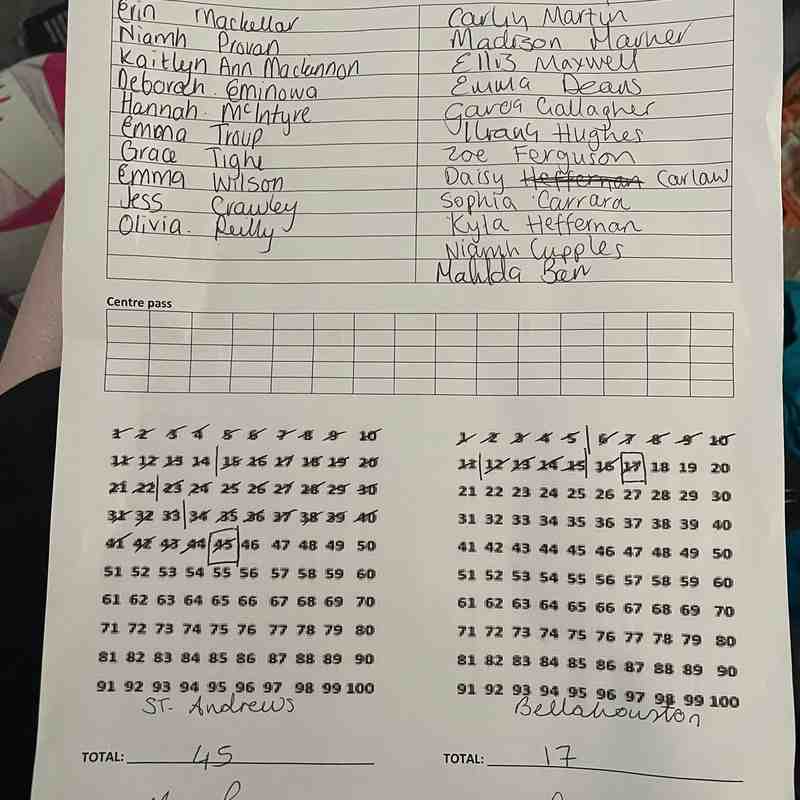 Erin Mackellar
Niamh Provan
Kaitlyn Ann Mackannon
Deborah Eminowa
Hannah McIntyre
Emma Troup
Grace Tighe
Emma Wilson
Jess Crawley
Olivia Reilly
Carlyn Martyn
Madison Marner
Ellis Maxwell
Emma Deans
Gallagher
Hughes
Zoe Ferguson
Daisy Heffernan Carlaw
Sophia Carrara
Kyla Heffernan
Niamh Cupples
Centre pass
1 2 3 4 5 6 7 8 9 10
11 12 13 14 15 16 17 18 19 20
21 22 23 24 25 26 27 28 29 30
31 32 33 34 35 36 37 38 39 40
41 42 43 44 45 46 47 48 49 50
51 52 53 54 55 56 57 58 59 60
61 62 63 64 65 66 67 68 69 70
71 72 73 74 75 76 77 78 79 80
81 82 83 84 85 86 87 88 89 90
91 92 93 94 95 96 97 98 99 100
ST. Andrews
TOTAL: 45
1 2 3 4 5 6 7 8 9 10
11 12 13 14 15 16 17 18 19 20
21 22 23 24 25 26 27 28 29 30
31 32 33 34 35 36 37 38 39 40
41 42 43 44 45 46 47 48 49 50
51 52 53 54 55 56 57 58 59 60
61 62 63 64 65 66 67 68 69 70
71 72 73 74 75 76 77 78 79 80
81 82 83 84 85 86 87 88 89 90
91 92 93 94 95 96 97 98 99 100
Bellahouston
TOTAL: 17